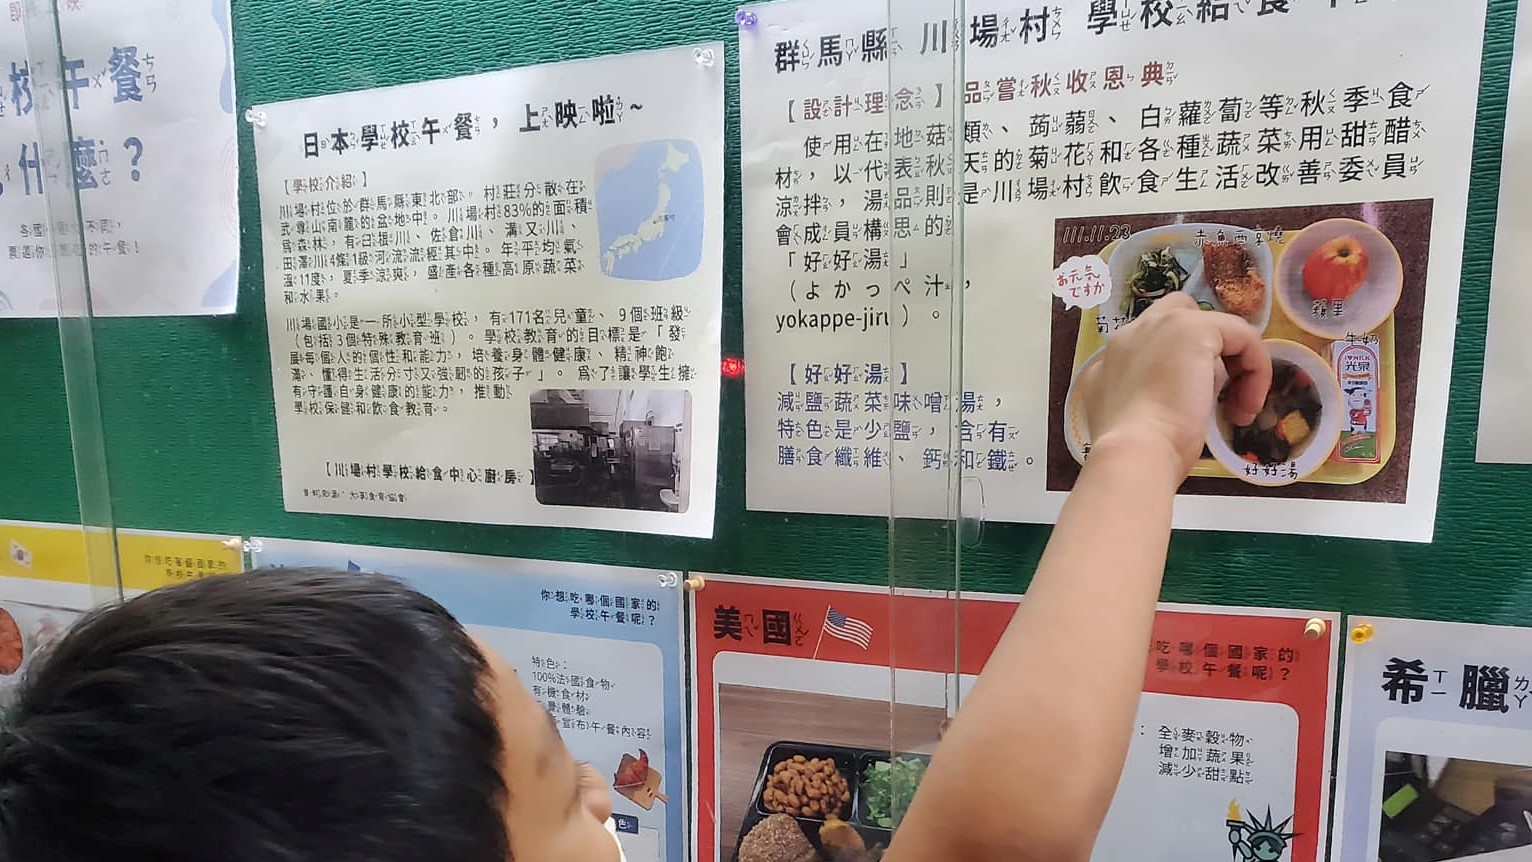 校午餐
什麼？
各國
的午餐！
日本學校午餐，上映啦～
【學校介紹】
川場村位於群馬縣東北部。村莊分散在
武尊山南麓的盆地中。川場村83%的面積
為森林，有白根川、佐倉川、溝又川、
田澤川4條1級河流流經其中。年平均氣
溫11度，夏季涼爽，盛產各種高原蔬菜
和水果。
川場國小是一所小型學校，有171名兒童、9個班級
（包括3個特殊教育班）。學校教育的目標是「發
展每個人的個性和能力，培養身體健康、精神飽
滿、懂得生活分寸又強韌的孩子」。為了讓學生擁
有守護自身健康的能力，推動
學校保健和飲食教育。
【川場村學校給食中心廚房】
群馬縣 川場村 學校給食
【設計理念】品嘗秋收恩典
使用在地菇類、蒟蒻、白蘿蔔等秋季食
材，以代表秋天的菊花和各種蔬菜用甜醋
涼拌，湯品則是川場村飲食生活改善委員
會成員構思的
「好好湯」
（よかっぺ汁，
yokappe-jiru）。
【好好湯】
減鹽蔬菜味噌湯，
特色是少鹽，含有
膳食纖維、鈣和鐵。
111.11.23
お元気
ですか
蘋果
牛奶
光泉
好好湯
你想吃哪個國家的
學校午餐呢？
特色：
100%法國食物
有機食材
宣布午餐內容
美國
吃哪個國家的
學校午餐呢？
全麥穀物
增加蔬果
減少甜點
希臘